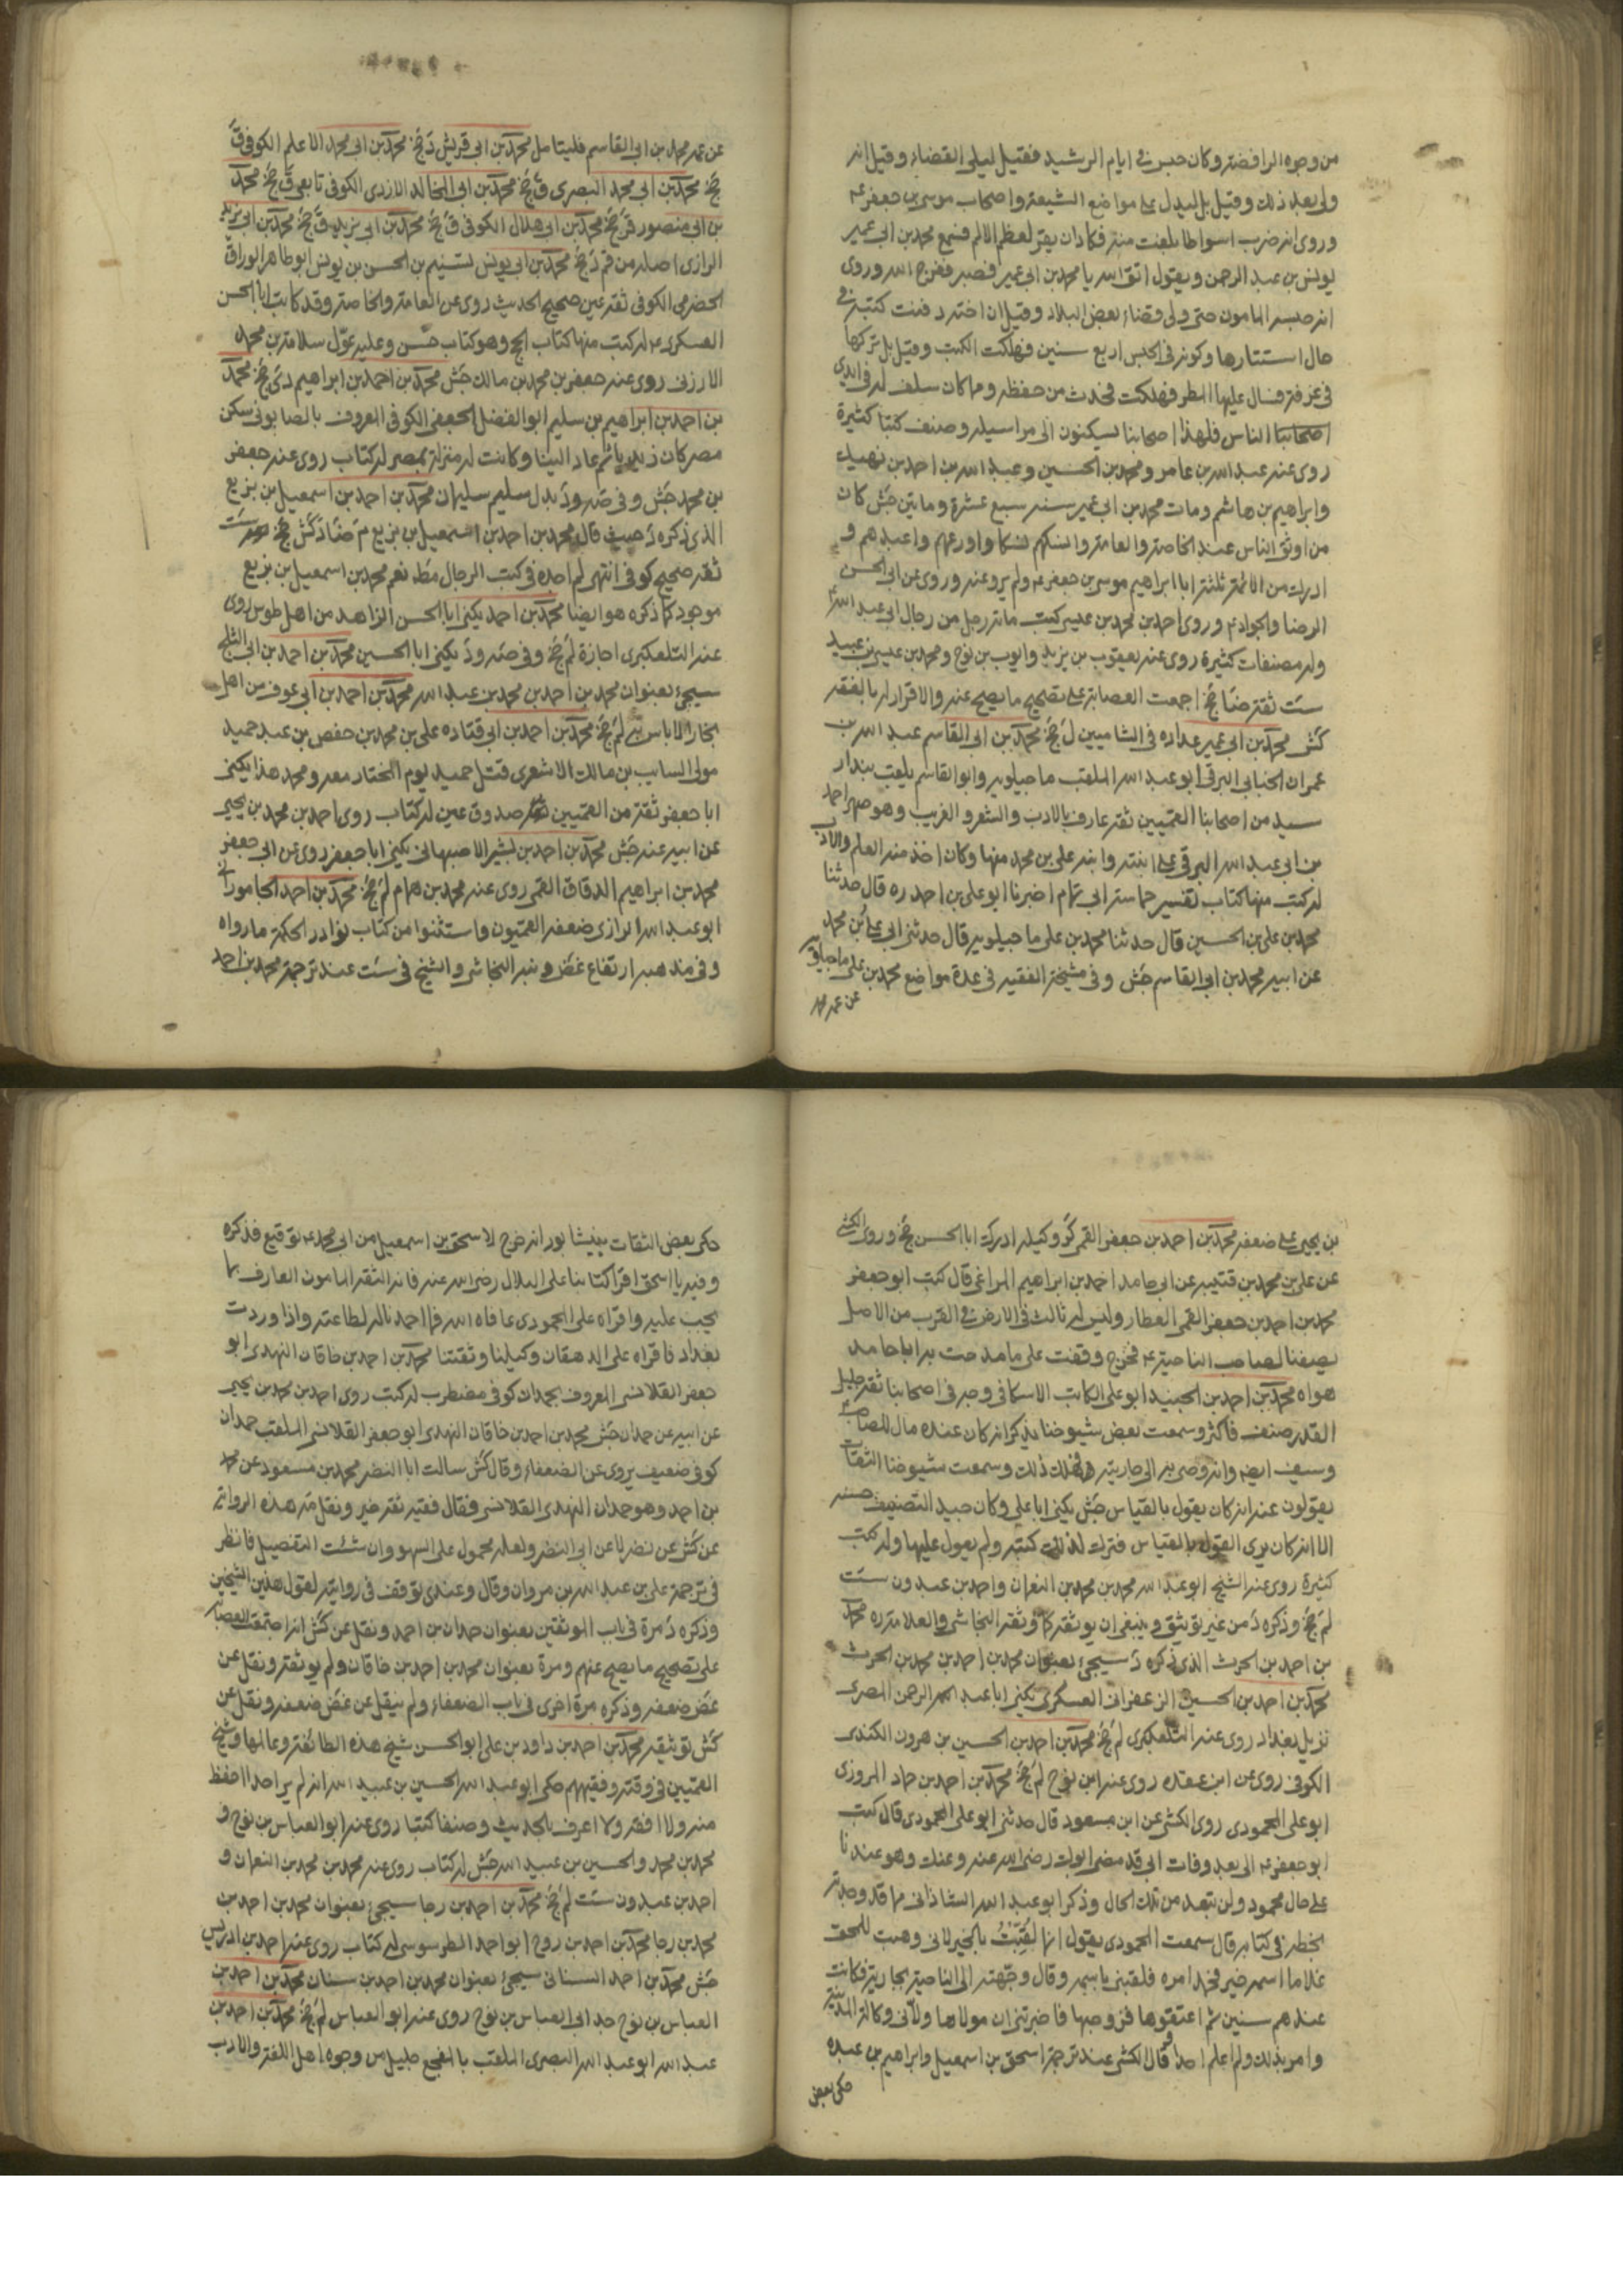 من وجوه الرافضة وكان حبس في ايام الرشيد فقيل ليلي القضاء وقيل انه
ولي بعد ذلك وقيل بل ليدل على مواضع الشيعة واصحاب موسى بن جعفر ع
وروى انه ضرب اسواطا بلغت منه فكاد ان يقر لعظم الالم فسمع محمد بن ابي عمير
يونس بن عبد الرحمن ويقول اتق الله يا محمد بن ابي عمير فصبر ففرج الله وروى
انه حبسه المامون حتى ولي قضاء بعض البلاد وقيل ان اخته دفنت كتبه في
حال استتارها وكونه في الحبس اربع سنين فهلكت الكتب وقيل بل تركها
في غرفة فسال عليها المطر فهلكت فحدث من حفظه ومما كان سلف له في ايدي
الناس فلهذا اصحابنا يسكنون الى مراسيله وصنف كتبا كثيرة
روى عنه عبد الله بن عامر ومحمد بن الحسين وعبد الله بن احمد بن نهيك
وابراهيم بن هاشم ومات محمد بن ابي عمير سنه سبع عشرة وماتين جش كان
من اوثق الناس عند الخاصة والعامة وانسكهم نسكا واورعهم واعبدهم و
ادرك من الائمة ثلثة ابا ابراهيم موسى بن جعفر ع ولم يرو عنه وروى عن ابي الحسن
الرضا والجواد ع وروى احمد بن محمد بن عيسى كتب مائة رجل من رجال ابي عبد الله ع
وله مصنفات كثيرة روى عنه يعقوب بن يزيد وايوب بن نوح ومحمد بن عيسى بن عبيد
ست ثقة ضا جخ اجمعت العصابة على تصحيح ما يصح عنه والاقرار له بالفقه
كش محمد بن ابي عمير عداده في الشاميين ل جخ محمد بن ابي القاسم عبد الله بن
عمران الجنابي البرقي ابو عبد الله الملقب ماجيلويه وابو القاسم يلقب بندار
سيد من اصحابنا القميين ثقة عارف بالادب والشعر والغريب وهو صهر احمد
بن ابي عبد الله البرقي على ابنته وابنه علي بن محمد منها وكان اخذ منه العلم والادب
له كتب منها كتاب تفسير حماسة ابي تمام اخبرنا ابو علي بن احمد ره قال حدثنا
محمد بن علي بن الحسين قال حدثنا محمد بن علي ماجيلويه قال حدثنا ابي علي بن محمد
عن ابيه محمد بن ابي القاسم جش وفي مشيخة الفقيه في عدة مواضع محمد بن علي ماجيلويه
عن عمه محمد
عن عمه محمد بن ابي القاسم فليتامل محمد بن ابي قريش د جخ محمد بن ابي محمد الاعلم الكوفي ق
جخ محمد بن ابي محمد البصري ق جخ محمد بن ابي المخالد الازدي الكوفي تابعي ق جخ محمد
بن ابي منصور ق جخ محمد بن ابي هلال الكوفي ق جخ محمد بن ابي يزيد ق جخ محمد بن ابي يزيد
الرازي اصله من قم د جخ محمد بن ابي يونس تسنيم بن الحسن بن يونس ابو طاهر الوراق
الحضرمي الكوفي ثقة عين صحيح الحديث روى عن العامة والخاصة وقد كاتب ابا الحسن
العسكري ع له كتب منها كتاب الحج وهو كتاب حسن وعليه عول سلامة بن محمد
الارزني روى عنه جعفر بن محمد بن مالك جش محمد بن احمد بن ابراهيم دي جخ محمد
بن احمد بن ابراهيم بن سليم ابو الفضل الجعفي الكوفي المعروف بالصابوني سكن
مصر كان زيديا ثم عاد الينا وكانت له منزلة بمصر له كتاب روى عنه جعفر
بن محمد جش وفي صه ود بدل سليم سليمان محمد بن احمد بن اسمعيل بن بزيع
الذي ذكره د حيث قال محمد بن احمد بن اسمعيل بن بزيع م ضا د كش جخ ست
ثقة صحيح كوفي انتهى لم اجده في كتب الرجال مط نعم محمد بن اسمعيل بن بزيع
موجود كما ذكره هو ايضا محمد بن احمد يكنى ابا الحسن الزاهد من اهل طوس روى
عنه التلعكبري اجازة لم جخ وفي صه ود يكنى ابا الحسين محمد بن احمد بن ابي الثلج
سيجئ بعنوان محمد بن احمد بن محمد بن عبد الله محمد بن احمد بن ابي عوف من اهل
بخارا لا باس به لم جخ محمد بن احمد بن ابي قتاده علي بن محمد بن حفص بن عبد حميد
مولى السايب بن مالك الاشعري قتل حميد يوم المختار معه ومحمد هذا يكنى
ابا جعفر ثقة من القميين صدوق عين له كتاب روى احمد بن محمد بن يحيى
عن ابيه عنه جش محمد بن احمد بن بشير الاصبهاني يكنى ابا جعفر روى عن ابي جعفر
محمد بن ابراهيم الدقاق القمي روى عنه محمد بن همام لم جخ محمد بن احمد الجاموراني
ابو عبد الله الرازي ضعفه القميون واستثنوا من كتاب نوادر الحكمة ما رواه
وفي مذهبه ارتفاع غض ونبه النجاشي والشيخ في ست عند ترجمة محمد بن احمد
بن يحيى على ضعفه محمد بن احمد بن جعفر القمي كر وكيله ادرك ابا الحسن جخ وروى الكشي
عن علي بن محمد بن قتيبه عن ابي حامد احمد بن ابراهيم المراغي قال كتب ابو جعفر
محمد بن احمد بن جعفر القمي العطار وليس له ثالث في الارض في القرب من الاصل
يصفنا لصاحب الناحية ع فخرج وقفت على ما مدحت به ابا حامد
هواه محمد بن احمد بن الجنيد ابو علي الكاتب الاسكافي وجه في اصحابنا ثقة جليل
القدر صنف فاكثر وسمعت بعض شيوخنا يذكر انه كان عنده مال للصاحب ع
وسيف ايضه وانه وصى به الى جاريته فهلك ذلك وسمعت شيوخنا الثقات
يقولون عنه انه كان يقول بالقياس جش يكنى ابا علي وكان جيد التصنيف حسنه
الا انه كان يرى القول بالقياس فترك لذلك كتبه ولم يعول عليها وله كتب
كثيرة روى عنه الشيخ ابو عبد الله محمد بن محمد بن النعمان واحمد بن عبدون ست
لم جخ وذكره د من غير توثيق وينبغي ان يوثقه كما وثقه النجاشي والعلامة ره محمد
بن احمد بن الحرث الذي ذكره د سيجئ بعنوان محمد بن احمد بن محمد بن الحرث
محمد بن احمد بن الحسين الزعفراني العسكري يكنى ابا عبد الرحمن المصري
نزيل بغداد روى عنه التلعكبري لم جخ محمد بن احمد بن الحسين بن هرون الكندي
الكوفي روى عن ابن عقده روى عنه ابن نوح لم جخ محمد بن احمد بن حماد المروزي
ابو علي المحمودي روى الكشي عن ابن مسعود قال حدثني ابو علي المحمودي قال كتب
ابو جعفر ع الي بعد وفات ابي قد مضى ابوك رضى الله عنه وعنك وهو عندنا
على حال محمود ولن تبعد من تلك الحال وذكر ابو عبد الله الشاذاني مما قد وجدته
بخطه في كتابه قال سمعت المحمودي يقول انما لقبت بالخير لاني وهبت للحق
غلاما اسمه خير فحمد امره فلقبني باسمه وقال وجهت الى الناحية بجارية فكانت
عندهم سنين ثم اعتقوها فزوجها فاخبرتني ان مولاها ولاني وكالة المدينة
وامر بذلك ولم اعلم احدا وقال الكشي عند ترجمة اسحق بن اسمعيل وابراهيم بن عبده
حكى بعض
حكى بعض الثقات بنيشابور انه خرج لاسحق بن اسمعيل من ابي محمد ع توقيع فذكره
وفيه يا اسحق اقرا كتابنا على البلالي رضى الله عنه فانه الثقة المامون العارف بما
يجب عليه واقراه على المحمودي عافاه الله فما احمدنا له لطاعته واذا وردت
بغداد فاقراه على الدهقان وكيلنا وثقتنا محمد بن احمد بن خاقان النهدي ابو
جعفر القلانسي المعروف بحمدان كوفي مضطرب له كتب روى احمد بن محمد بن يحيى
عن ابيه عن حمدان جش محمد بن احمد بن خاقان النهدي ابو جعفر القلانسي الملقب حمدان
كوفي ضعيف يروي عن الضعفاء وقال كش سالت ابا النضر محمد بن مسعود عن محمد
بن احمد وهو حمدان النهدي القلانسي فقال فقيه ثقة خير ونقل صه هذه الرواية
عن كش عن نضر لا عن ابي النضر ولعله محمول على السهو وان شئت التفصيل فانظر
في ترجمة علي بن عبد الله بن مروان وقال وعندي توقف في روايته لقول هذين الشيخين
وذكره د مرة في باب الموثقين بعنوان حمدان بن احمد ونقل عن كش انه اجتمعت العصابة
على تصحيح ما يصح عنهم ومرة بعنوان محمد بن احمد بن خاقان ولم يوثقه ونقل عن
غض ضعفه وذكره مرة اخرى في باب الضعفاء ولم ينقل عن غض ضعفه ونقل عن
كش توثيقه محمد بن احمد بن داود بن علي ابو الحسن شيخ هذه الطائفة وعالمها وشيخ
القميين في وقته وفقيههم حكى ابو عبد الله الحسين بن عبيد الله انه لم ير احدا احفظ
منه ولا افقه ولا اعرف بالحديث وصنف كتبا روى عنه ابو العباس بن نوح و
محمد بن محمد والحسين بن عبيد الله جش له كتاب روى عنه محمد بن محمد بن النعمان و
احمد بن عبدون ست لم جخ محمد بن احمد بن رجا سيجئ بعنوان محمد بن احمد بن
محمد بن رجا محمد بن احمد بن روح ابو احمد الطرسوسي له كتاب روى عنه احمد بن ادريس
جش محمد بن احمد السناني سيجئ بعنوان محمد بن احمد بن سنان محمد بن احمد بن
العباس بن نوح جد ابي العباس بن نوح روى عنه ابو العباس لم جخ محمد بن احمد بن
عبد الله ابو عبد الله البصري الملقب بالمفجع جليل من وجوه اهل اللغة والادب